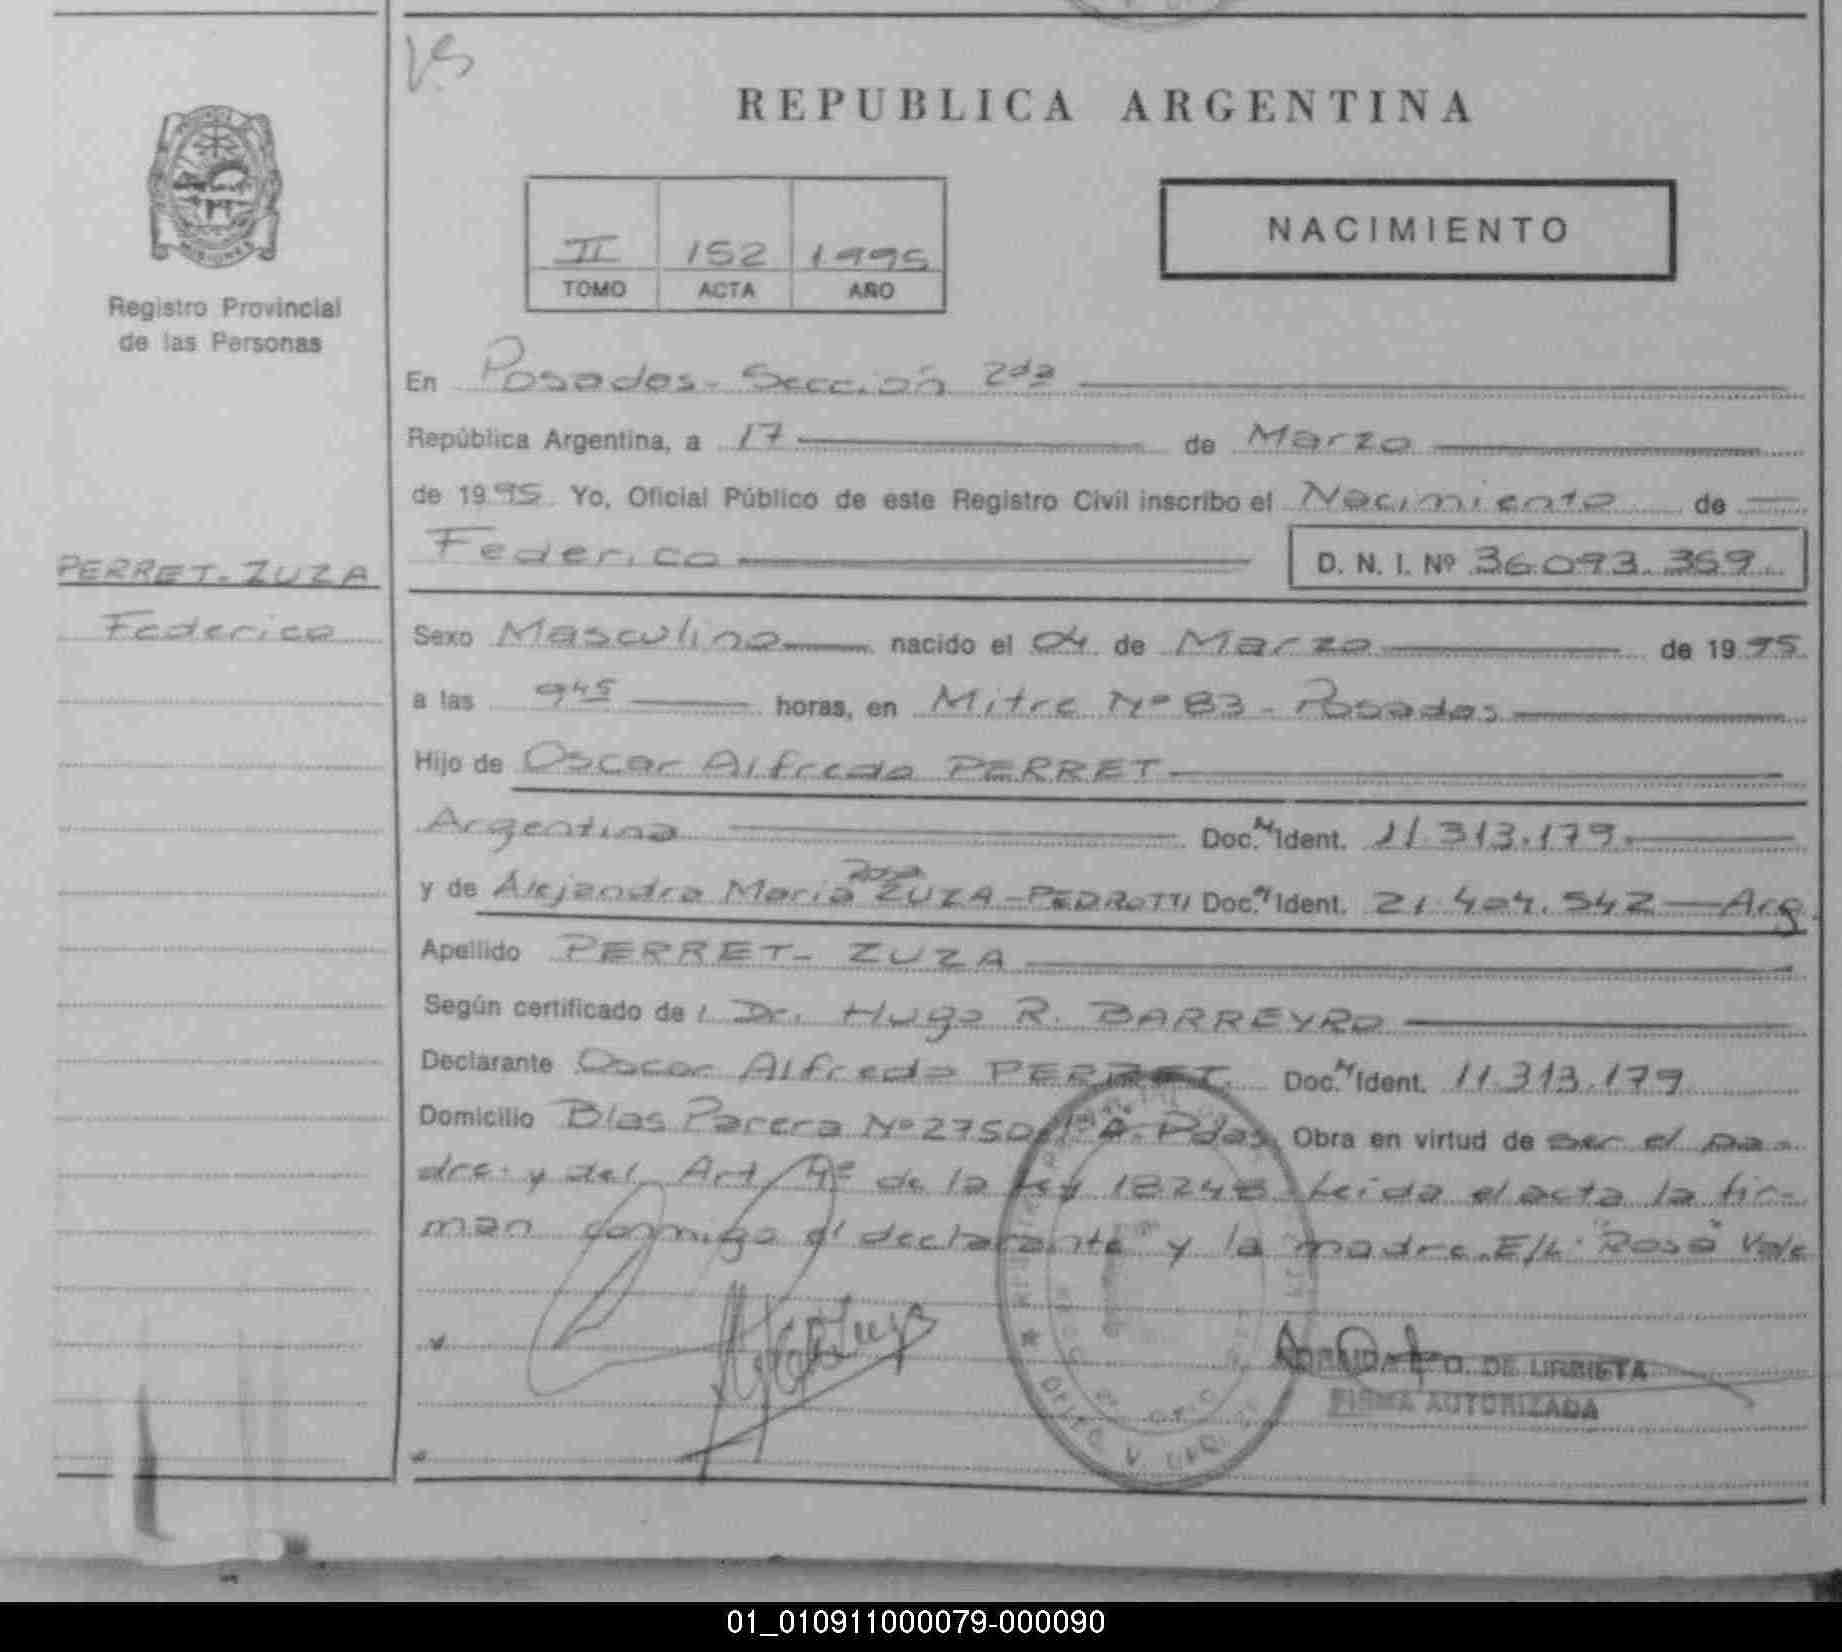 REPUBLICA ARGENTINA
MISIONES
Registro Provincial
de las Personas
II 152 1995
TOMO ACTA AÑO
NACIMIENTO
En Posadas - Sección 2da
República Argentina, a 17 de Marzo
de 1995 Yo, Oficial Público de este Registro Civil inscribo el Nacimiento de
Federico D. N. I. Nº 36.093.369
PERRET-ZUZA
Federico
Sexo Masculino nacido el 04 de Marzo de 1995
a las 9 45 horas, en Mitre Nº 83 - Posadas
Hijo de Oscar Alfredo PERRET
Argentina Doc. Ident. 11.313.179
Rosa
y de Alejandra Maria ZUZA-PEDROTTI Doc. Ident. 21.404.542 Arg.
Apellido PERRET - ZUZA
Según certificado de Dr. Hugo R. BARREYRO
Declarante Oscar Alfredo PERRET Doc. Ident. 11.313.179
Domicilio Blas Parera Nº 2750 Pdas. Obra en virtud de ser el pa-
dre y del Art 4º de la Ley 18248 Leida el acta la fir-
man conmigo el declarante y la madre. E/L: "Rosa" Vale
DE URBIETA
FIRMA AUTORIZADA
01_010911000079-000090